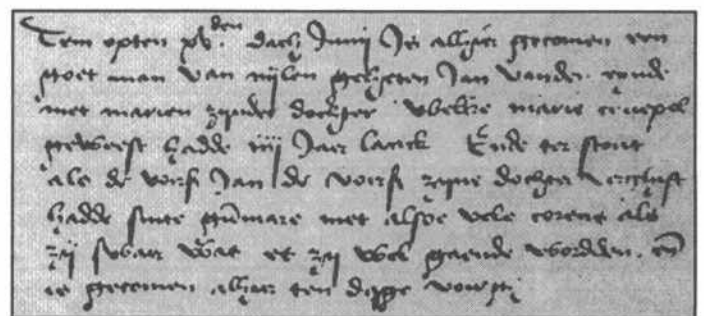 Item opten xv.den dach Junij Is alhier gecomen een
goet man van nijlen geheten Jan vander eynde
met marien zijnder dochter welke marie creupel
geweest hadde iiij Jaer lanck Ende ter stont
als de vors Jan de voirs zijne dochter verghift
hadde sinte gūmare met alsoe vele corens als
zij swaer wat es zij wel gaende wordden. eñ
is gecomen alhier ten dage vours